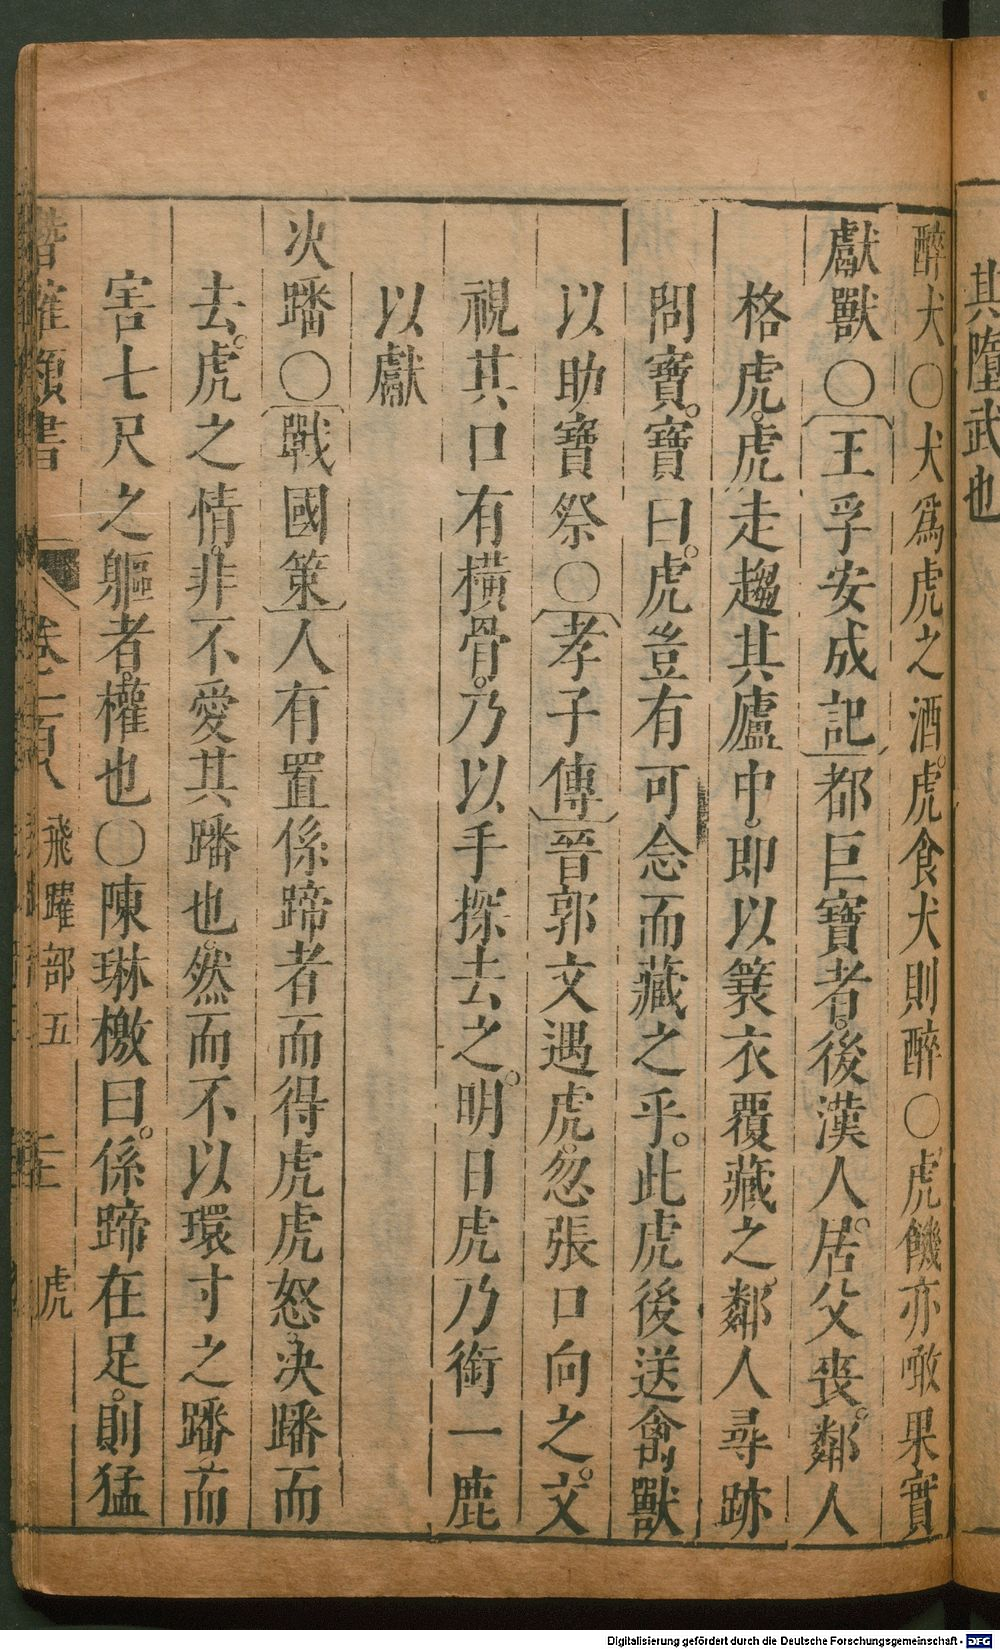 其墮武也
醉犬○犬爲虎之酒。虎食犬則醉○虎饑亦噉果實
獻獸○〔王孚安成記〕都巨寶者。後漢人。居父喪。鄰人
格虎。虎走趨其廬中。即以簑衣覆藏之。鄰人尋跡
問寶。寶曰。虎豈有可念而藏之乎。此虎後送禽獸
以助寶祭○〔孝子傳〕晉郭文遇虎。忽張口向之。文
視其口有横骨。乃以手探去之。明日虎乃銜一鹿
以獻
次蹯○〔戰國策〕人有置係蹄者而得虎虎怒。决蹯而
去。虎之情。非不愛其蹯也。然而不以環寸之蹯。而
害七尺之軀者。權也○陳琳檄曰。係蹄在足。則猛
潛確類書 卷之一百八 飛躍部五 虎
Digitalisierung gefördert durch die Deutsche Forschungsgemeinschaft - DFG